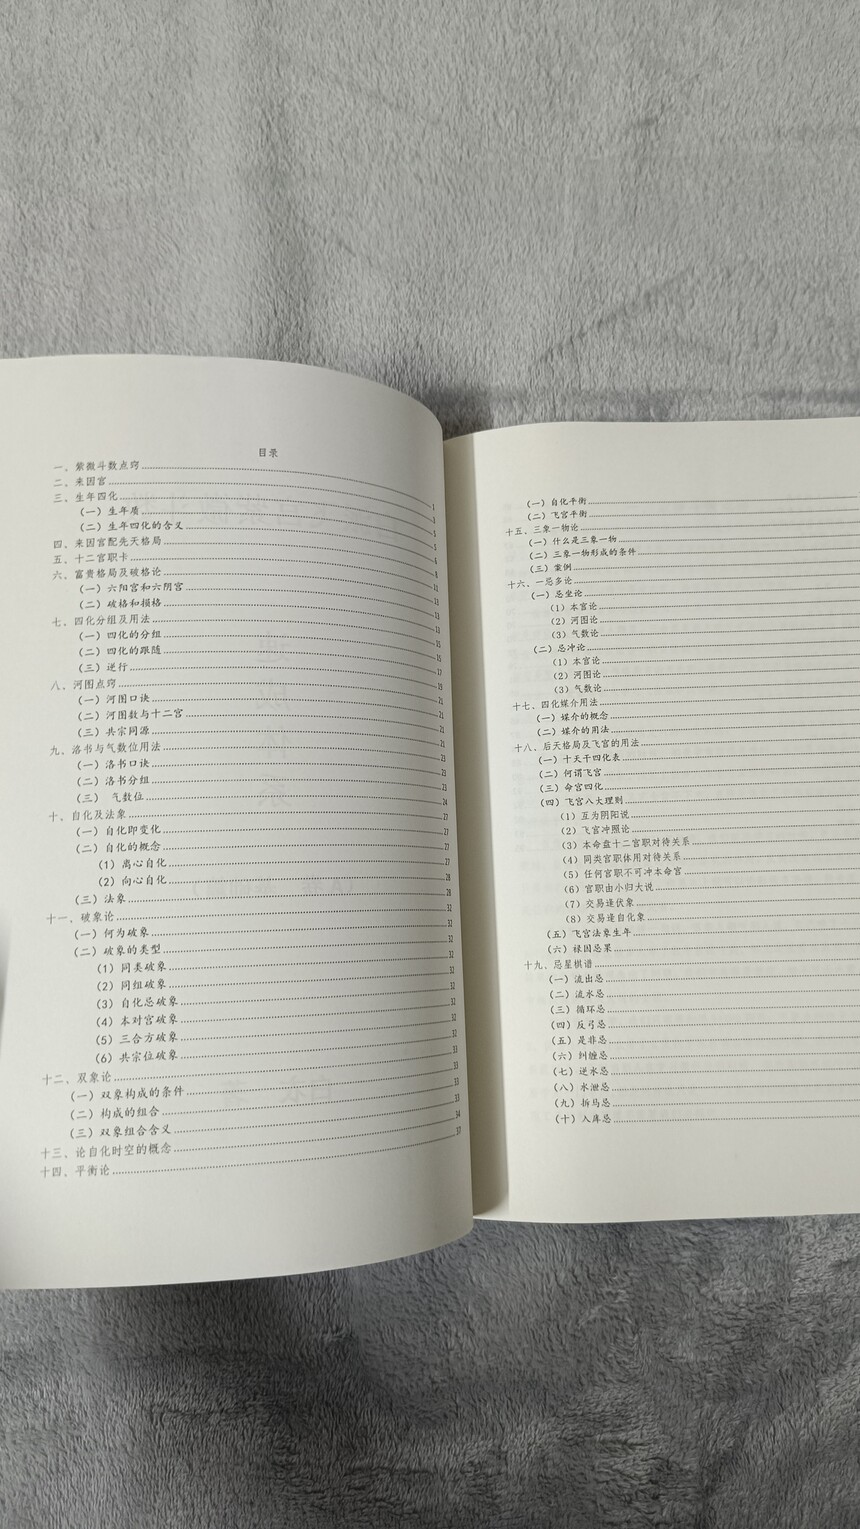 目录
一、紫微斗数点窍
二、来因宫
三、生年四化
(一)生年质
(二)生年四化的含义
四、来因宫配先天格局
五、十二宫职卡
六、富贵格局及破格论
(一)六阳宫和六阴宫
(二)破格和损格
七、四化分组及用法
(一)四化的分组
(二)四化的跟随
(三)逆行
八、河图点窍
(一)河图口诀
(二)河图数与十二宫
(三)共宗同源
九、洛书与气数位用法
(一)洛书口诀
(二)洛书分组
(三) 气数位
十、自化及法象
(一)自化即变化
(二)自化的概念
(1)离心自化
(2)向心自化
(三)法象
十一、破象论
(一)何为破象
(二)破象的类型
(1)同类破象
(2)同组破象
(3)自化忌破象
(4)本对宫破象
(5)三合方破象
(6)共宗位破象
十二、双象论
(一)双象构成的条件
(二)构成的组合
(三)双象组合含义
十三、论自化时空的概念
十四、平衡论
(一)自化平衡
(二)飞宫平衡
十五、三象一物论
(一)什么是三象一物
(二)三象一物形成的条件
(三)案例
十六、一忌多论
(一)忌坐论
(1)本宫论
(2)河图论
(3)气数论
(二)忌冲论
(1)本宫论
(2)河图论
(3)气数论
十七、四化媒介用法
(一)媒介的概念
(二)媒介的用法
十八、后天格局及飞宫的用法
(一)十天干四化表
(二)何谓飞宫
(三)命宫四化
(四)飞宫八大理则
(1)互为阴阳说
(2)飞宫冲照论
(3)本命盘十二宫职对待关系
(4)同类宫职体用对待关系
(5)任何宫职不可冲本命宫
(6)宫职由小归大说
(7)交易逢伏象
(8)交易逢自化象
(五)飞宫法象生年
(六)禄因忌果
十九、忌星棋谱
(一)流出忌
(二)流水忌
(三)循环忌
(四)反弓忌
(五)是非忌
(六)纠缠忌
(七)逆水忌
(八)水泄忌
(九)拆马忌
(十)入库忌